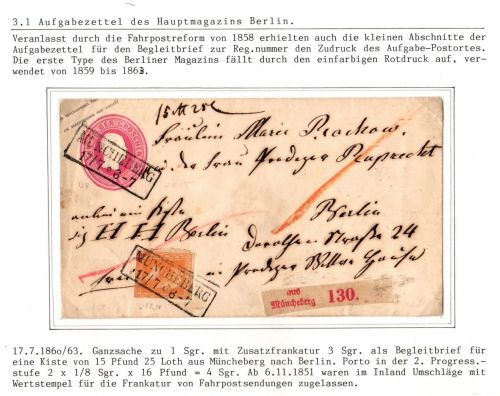 3.1 Aufgabezettel des Hauptmagazins Berlin.
Veranlasst durch die Fahrpostreform von 1858 erhielten auch die kleinen Abschnitte der
Aufgabezettel für den Begleitbrief zur Reg.nummer den Zudruck des Aufgabe-Postortes.
Die erste Type des Berliner Magazins fällt durch den einfarbigen Rotdruck auf, ver-
wendet von 1859 bis 1863.
GROSCHEN
MÜNCHEBERG
17/7 * 6-7
Fräulein Marie Prochow.
der Frau Prediger Ruprecht
Berlin
H H Berlin
Dorotheen Straße 24
MÜNCHEBERG
17/7 * 6-7
Prediger Wittwe Hause
aus
Müncheberg 130.
17.7.186o/63. Ganzsache zu 1 Sgr. mit Zusatzfrankatur 3 Sgr. als Begleitbrief für
eine Kiste von 15 Pfund 25 Loth aus Müncheberg nach Berlin. Porto in der 2. Progress.-
stufe 2 x 1/8 Sgr. x 16 Pfund = 4 Sgr. Ab 6.11.1851 waren im Inland Umschläge mit
Wertstempel für die Frankatur von Fahrpostsendungen zugelassen.